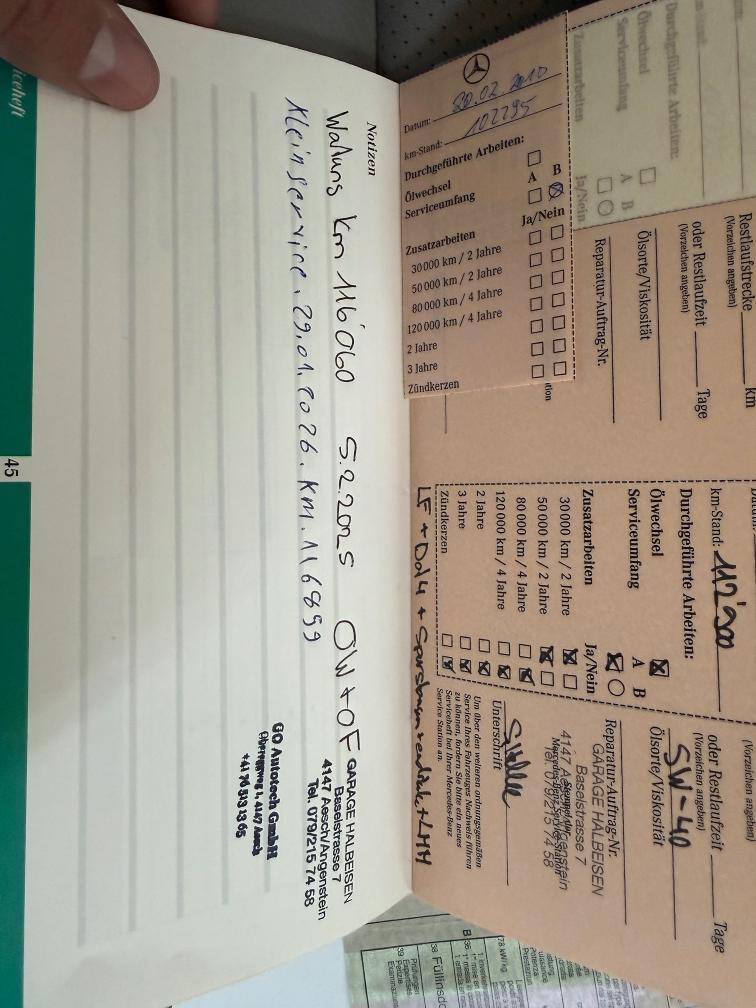 Datum: 20.02.2010
km-Stand: 102295
Durchgeführte Arbeiten:
Ölwechsel
A B
Serviceumfang
Ja/Nein
Zusatzarbeiten
30 000 km / 2 Jahre
50 000 km / 2 Jahre
80 000 km / 4 Jahre
120 000 km / 4 Jahre
2 Jahre
3 Jahre
Zündkerzen
Durchgeführte Arbeiten:
Ölwechsel
A B
Serviceumfang
Ja/Nein
Zusatzarbeiten
Restlaufstrecke
(Vorzeichen angeben)
km
oder Restlaufzeit
(Vorzeichen angeben)
Tage
Ölsorte/Viskosität
Reparatur-Auftrag-Nr.
km-Stand: 112'900
Durchgeführte Arbeiten:
Ölwechsel
A B
Serviceumfang
Ja/Nein
Zusatzarbeiten
30 000 km / 2 Jahre
50 000 km / 2 Jahre
80 000 km / 4 Jahre
120 000 km / 4 Jahre
2 Jahre
3 Jahre
Zündkerzen
(Vorzeichen angeben)
oder Restlaufzeit
(Vorzeichen angeben)
Tage
5W-40
Ölsorte/Viskosität
Reparatur-Auftrag-Nr.
GARAGE HALBEISEN
Baselstrasse 7
4147 Aesch/Angenstein
Tel. 079/215 74 58
Unterschrift
Um über den weiteren ordnungsgemäßen
Service Ihres Fahrzeuges Nachweis führen
zu können, fordern Sie bitte ein neues
Serviceheft bei Ihrer Mercedes-Benz
Service Station an.
Notizen
km 116'060 5.2.2025 OW+OF
GARAGE HALBEISEN
Baselstrasse 7
4147 Aesch/Angenstein
Tel. 079/215 74 58
Kleinservice. 29.01.2026. KM. 116899
GO Autotech GmbH
4147 Aesch
45
iceheft